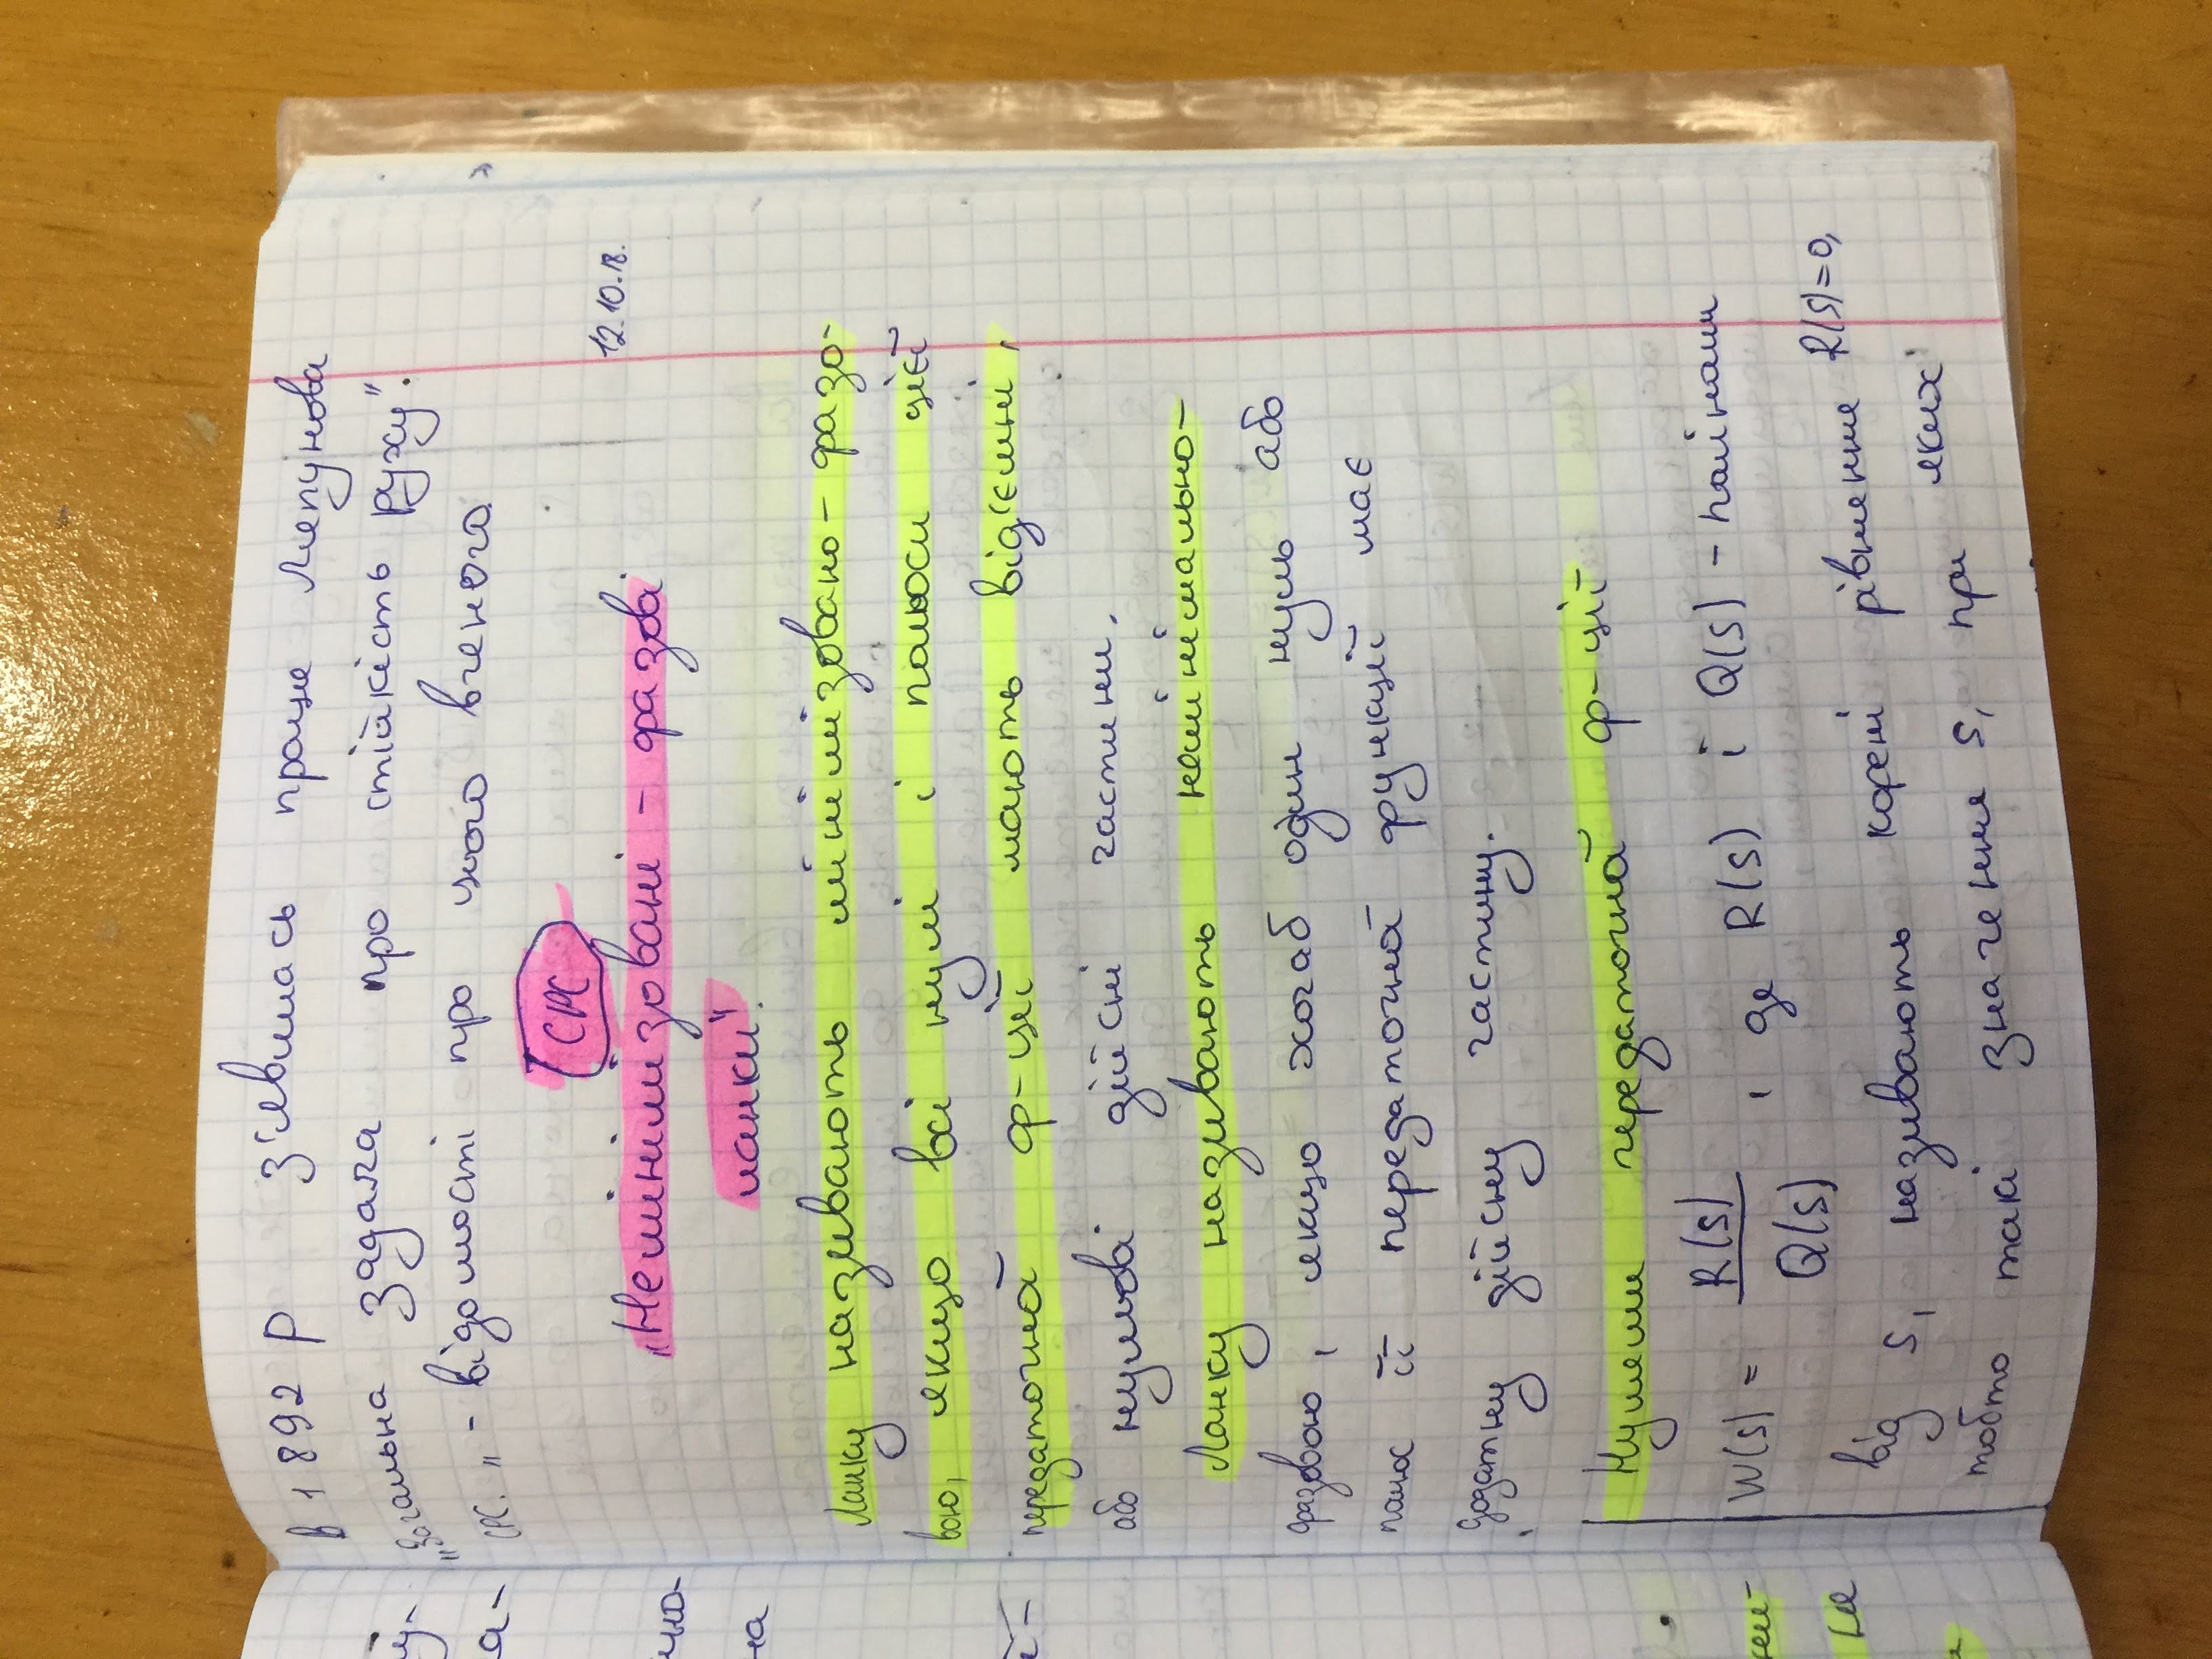 В 1892 р з'явилась праця Ляпунова
„Загальна задача про стійкість руху".
СРС. „ - відомості про цього вченого.
СРС
12.10.18.
„Немінімізовані - фазові
ланки".
Ланку називають мінімізовано - фазо-
вою, якщо всі нулі і полюси цієї
передаточної ф-ції мають від'ємні,
або нульові дійсні частини.
Ланку називають немінімально-
фазовою, якщо хочаб один нуль або
полюс її передаточної функції має
додатну дійсну частину.
Нулями передаточної ф-ції
W(s) = R(s)/Q(s), де R(s) і Q(s) - поліноми
від s, називають корені рівняння R(s)=0,
тобто такі значення s, при яких